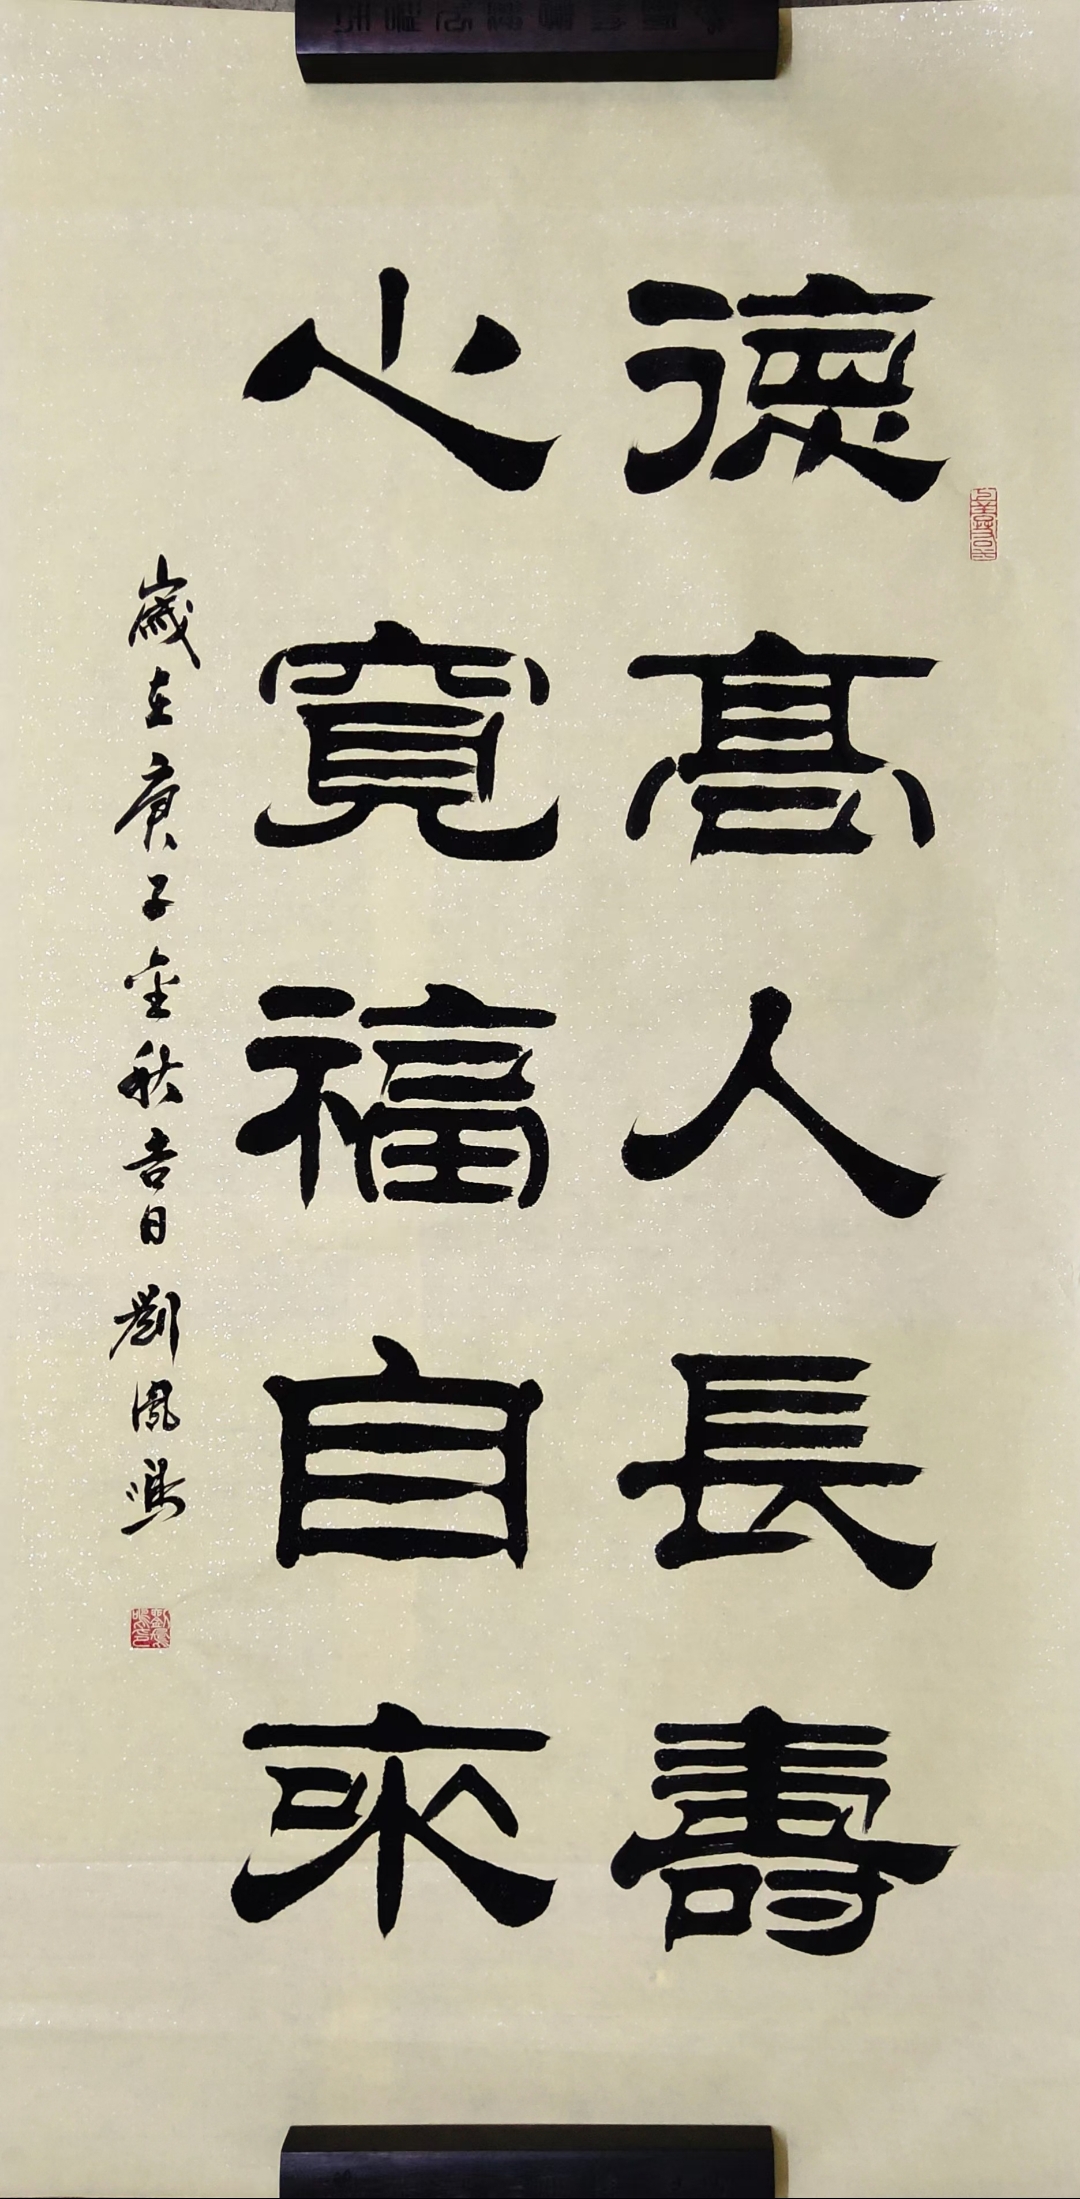 德高人長壽
心寬福自來
歲在庚子金秋吉日 劉鳳鳴